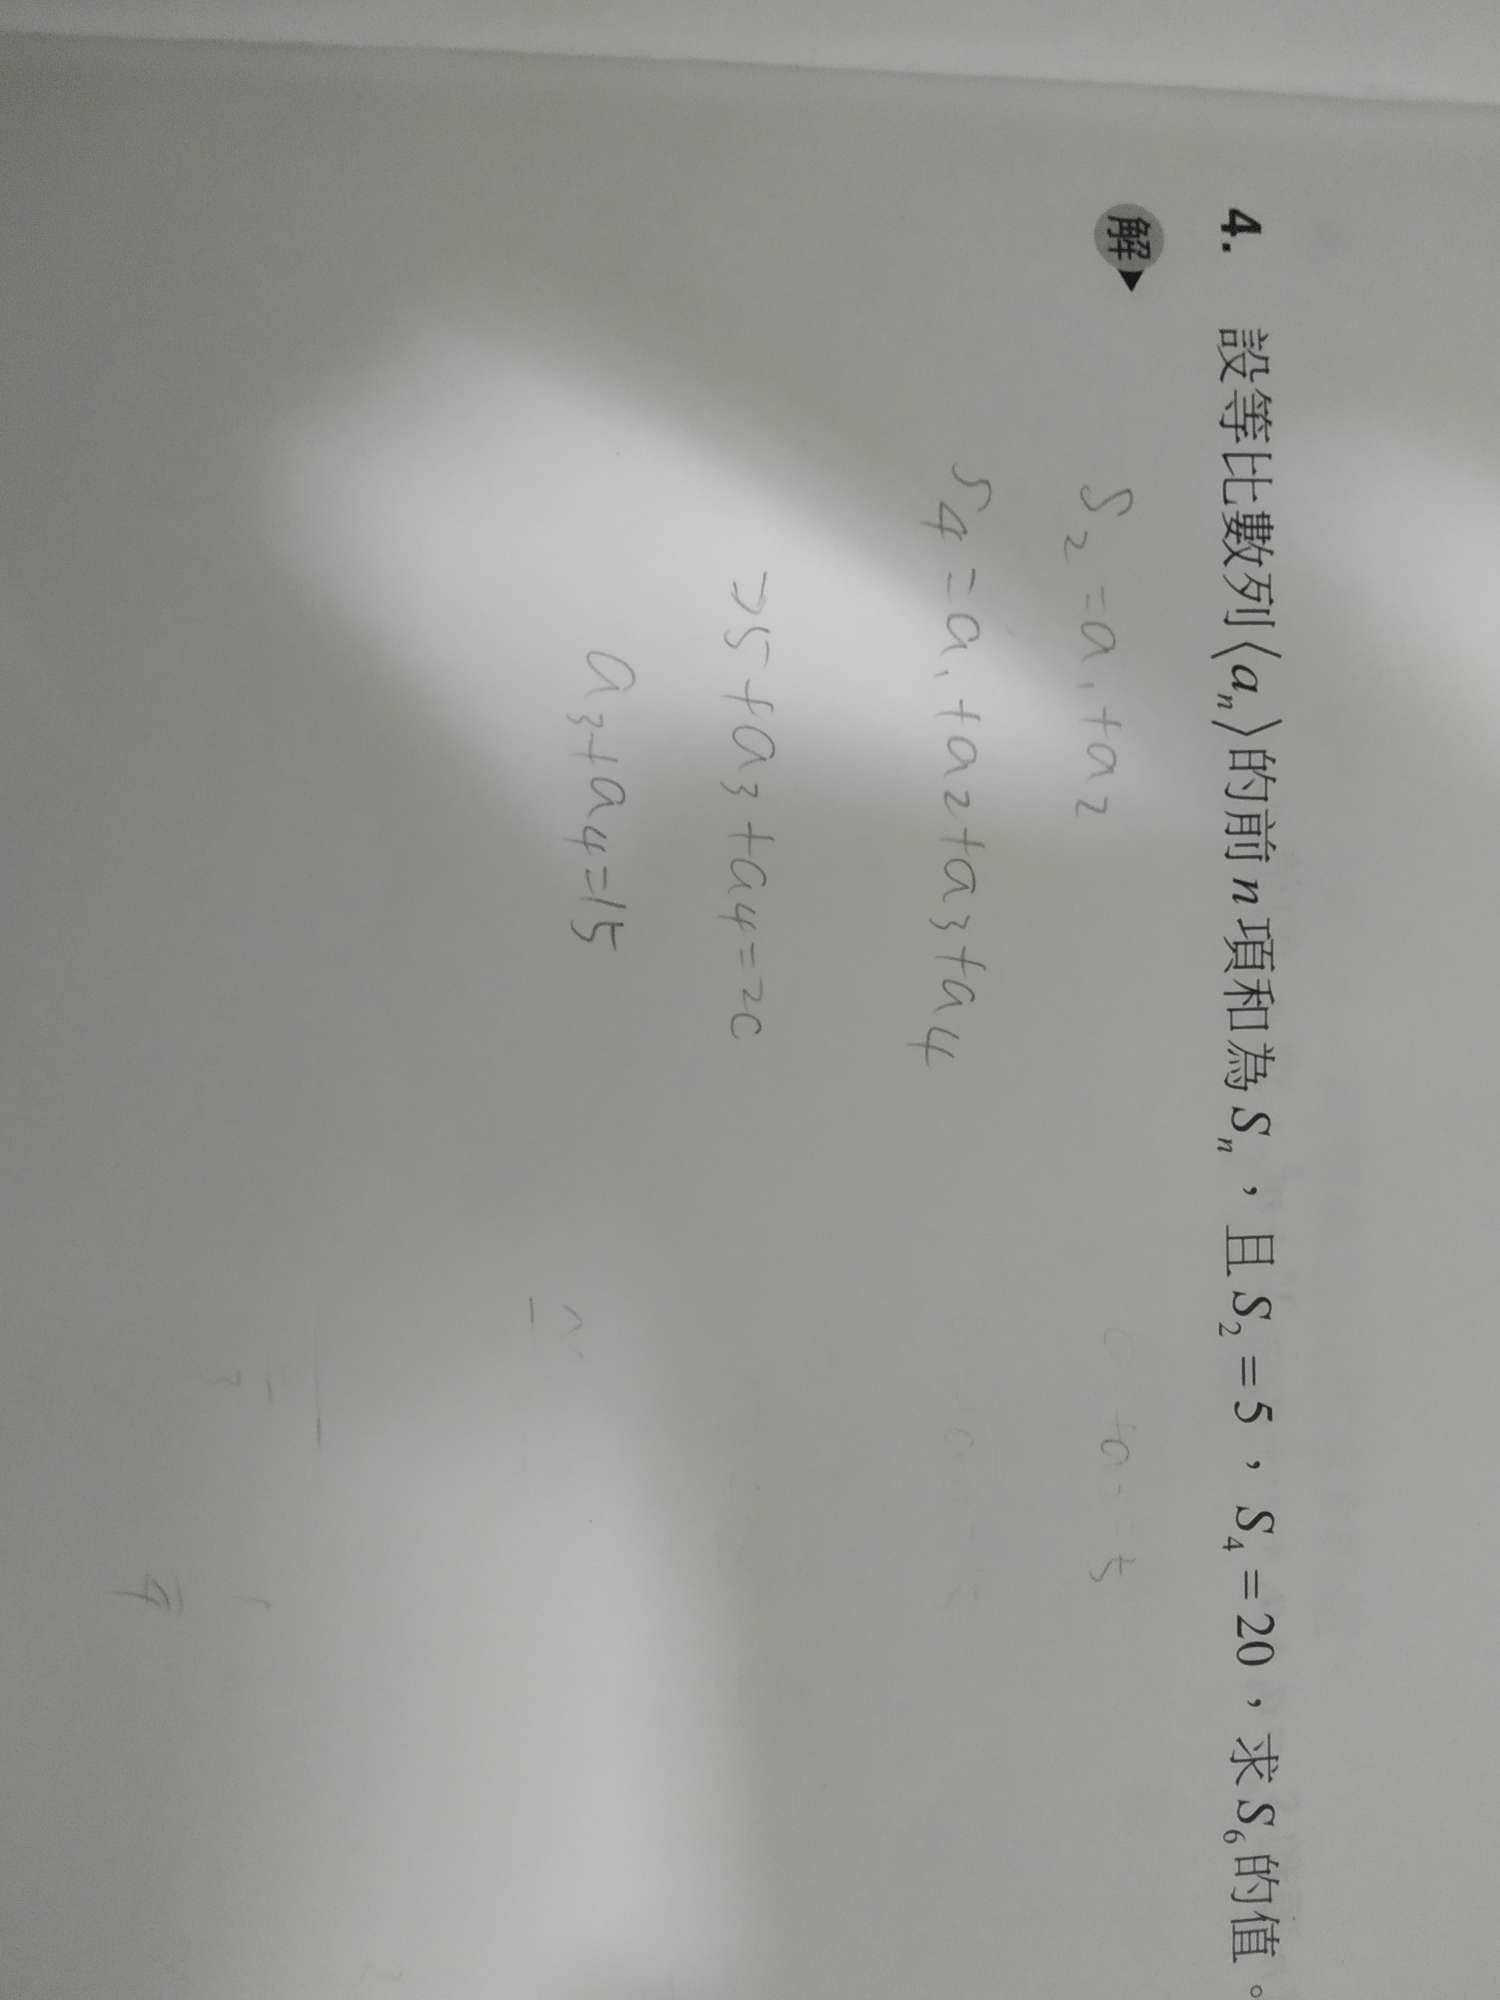 4. 設等比數列⟨aₙ⟩的前 n 項和為 Sₙ，且 S₂＝5，S₄＝20，求 S₆ 的值。
解
S₂=a₁+a₂
S₄=a₁+a₂+a₃+a₄
→5+a₃+a₄=20
a₃+a₄=15